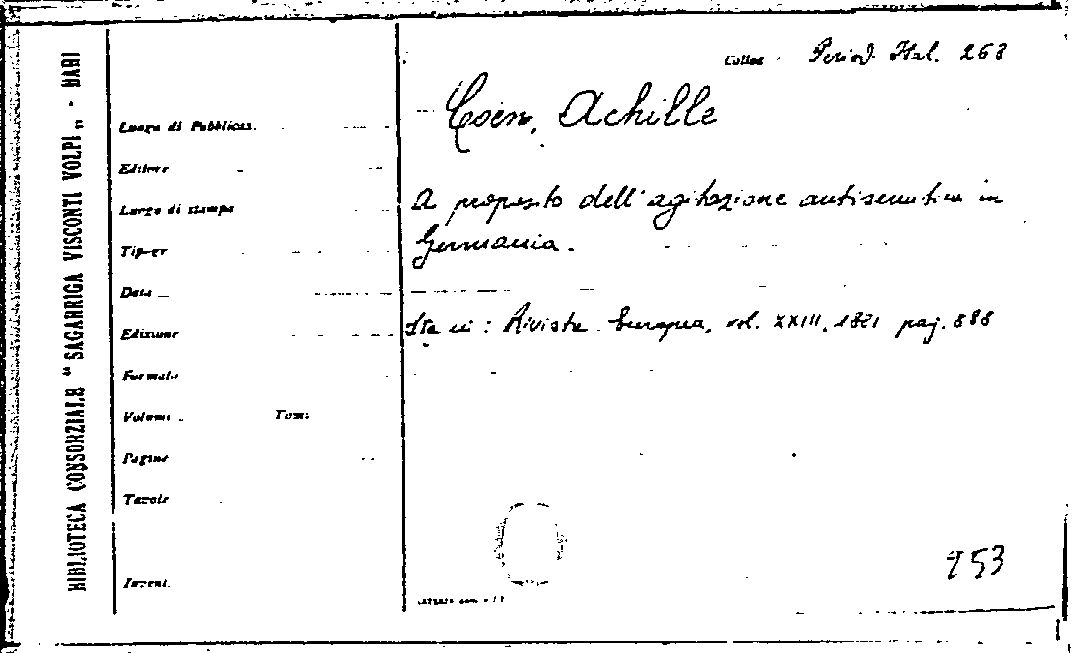 BIBLIOTECA CONSORZIALE “ SAGARRIGA VISCONTI VOLPI „ - BARI
Colloc. Period. Ital. 268
Coen, Achille
Luogo di Pubblicaz.
Editore
Luogo di stampa
Tip-er
Data
Edizione
Formato
Volumi
Tomi
Pagine
Tavole
Invent.
A proposito dell'agitazione antisemitica in
Germania.
Sta in: Rivista Europea, vol. XXIII, 1881 pag. 888
953